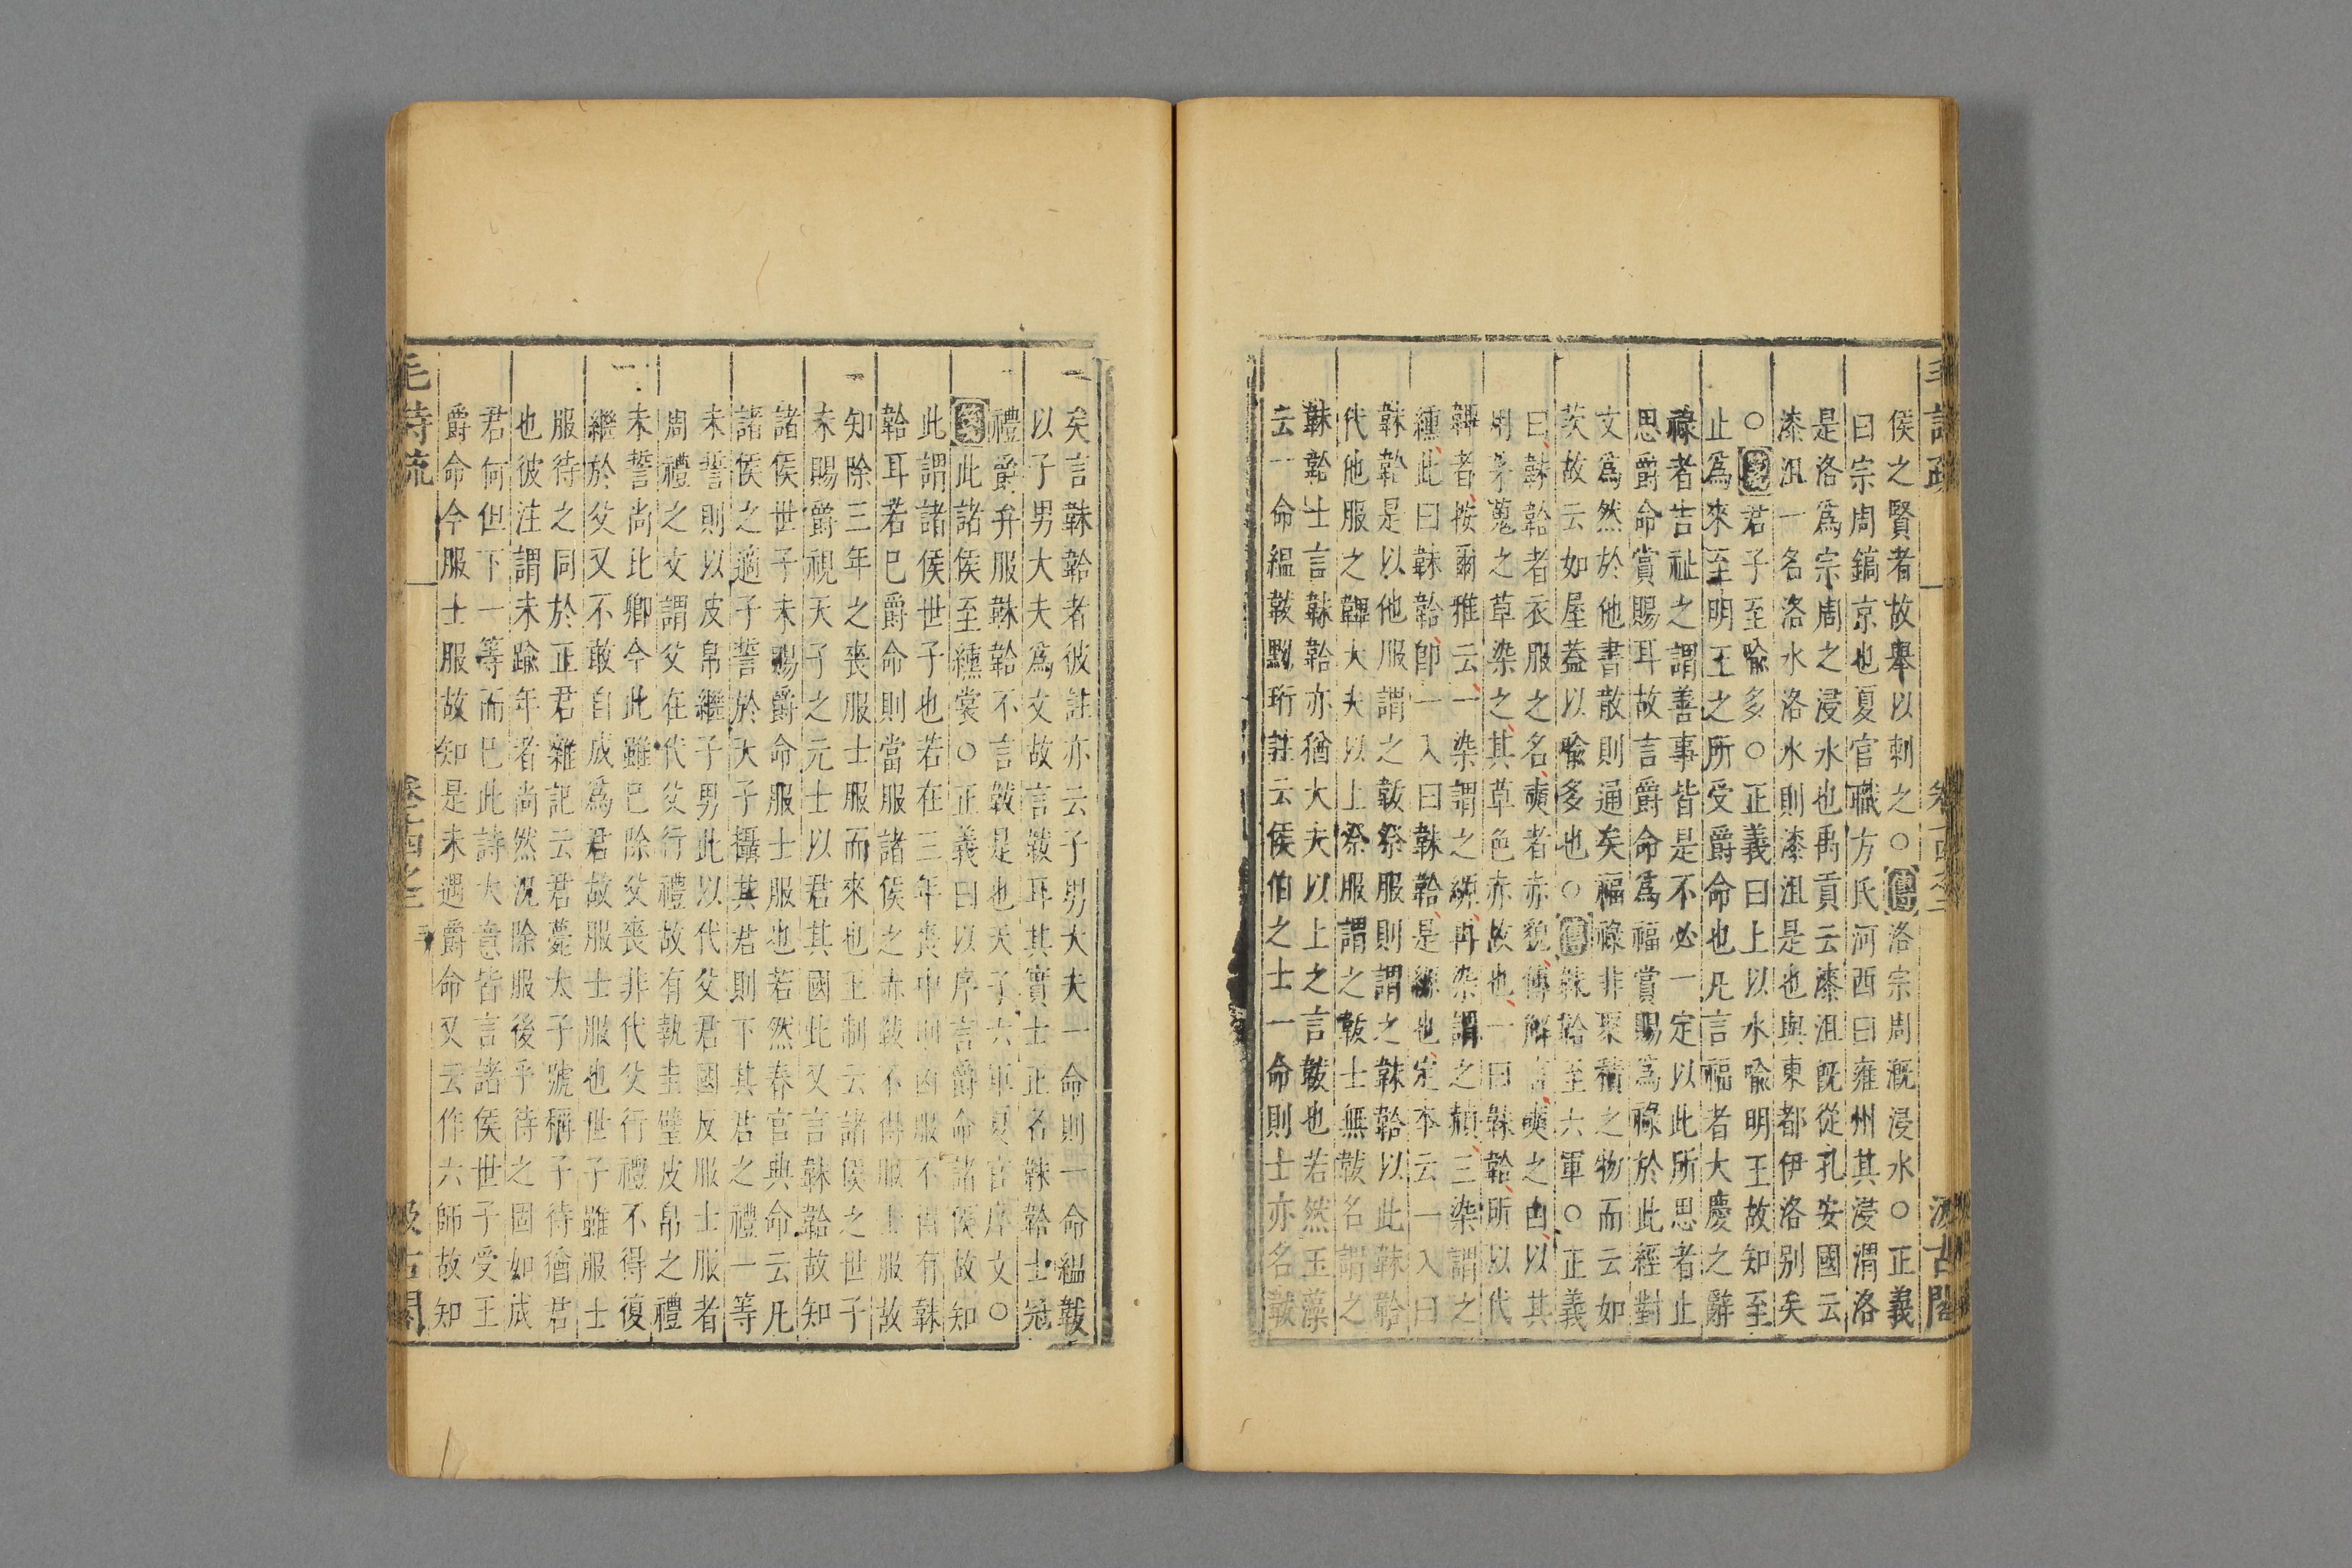 侯之賢者故舉以刺之○傳洛宗周漑浸水○正義
曰宗周鎬京也夏官職方氏河西曰雍州其浸渭洛
是洛爲宗周之浸水也禹貢云漆沮旣從孔安國云
漆沮一名洛水洛水則漆沮是也與東都伊洛別矣
○箋君子至喻多○正義曰上以水喻明王故知至
止爲來至明王之所受爵命也凡言福者大慶之辭
祿者吉祉之謂善事皆是不必一定以此所思者止
思爵命賞賜耳故言爵命爲福賞賜爲祿於此經對
文爲然於他書散則通矣福祿非聚積之物而云如
茨故云如屋蓋以喻多也○傳韎韐至六軍○正義
曰韎韐者衣服之名奭者赤貌傳解言奭之由以其
用茅蒐之草染之其草色赤故也一曰韎韐所以代
韠者按爾雅云一染謂之縓再染謂之赬三染謂之
纁此曰韎韐卽一入曰韎韐是縓也定本云一入曰
韎韐是以他服謂之韍祭服則謂之韎韐以此韎韐
代他服之韠大夫以上祭服謂之韍士無韍名謂之
韎韐士言韎韐亦猶大夫以上之言韍也若然玉藻
云一命縕韍黝珩註云侯伯之士一命則士亦名韍
矣言韎韐者彼註亦云子男大夫一命則一命縕韍
以子男大夫爲文故言韍耳其實士正名韎韐士冠
禮爵弁服韎韐不言韍是也天子六軍夏官序文○
箋此諸侯至纁裳○正義曰以序言爵命諸侯故知
此謂諸侯世子也若在三年喪中則凶服不得有韎
韐耳若已爵命則當服諸侯之赤韍不得服士服故
知除三年之喪服士服而來也王制云諸侯之世子
未賜爵視天子之元士以君其國此又言韎韐故知
諸侯世子未賜爵命服士服也若然春官典命云凡
諸侯之適子誓於天子攝其君則下其君之禮一等
未誓則以皮帛繼子男此以代父君國反服士服者
周禮之文謂父在代父行禮故有執圭璧皮帛之禮
未誓尚比卿今此雖已除父喪非代父行禮不得復
繼於父又不敢自成爲君故服士服也世子雖服士
服待之同於正君雜記云君薨太子號稱子待猶君
也彼注謂未踰年者尚然況除服後乎待之固如成
君何但下一等而已此詩大意皆言諸侯世子受王
爵命今服士服故知是未遇爵命又云作六師故知
毛詩疏
汲古閣